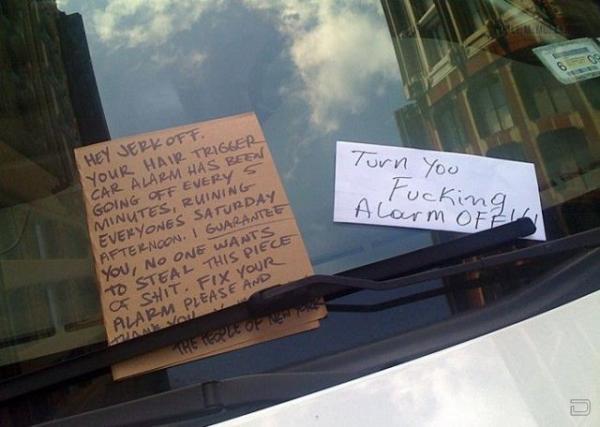 HEY JERKOFF.
YOUR HAIR TRIGGER
CAR ALARM HAS BEEN
GOING OFF EVERY 5
MINUTES, RUINING
EVERYONES SATURDAY
AFTERNOON. I GUARANTEE
YOU, NO ONE WANTS
TO STEAL THIS PIECE
OF SHIT. FIX YOUR
ALARM PLEASE AND
THANK YOU
THE PEOPLE OF NEW YORK
Turn You
Fucking
Alarm OFF!!!
6 09